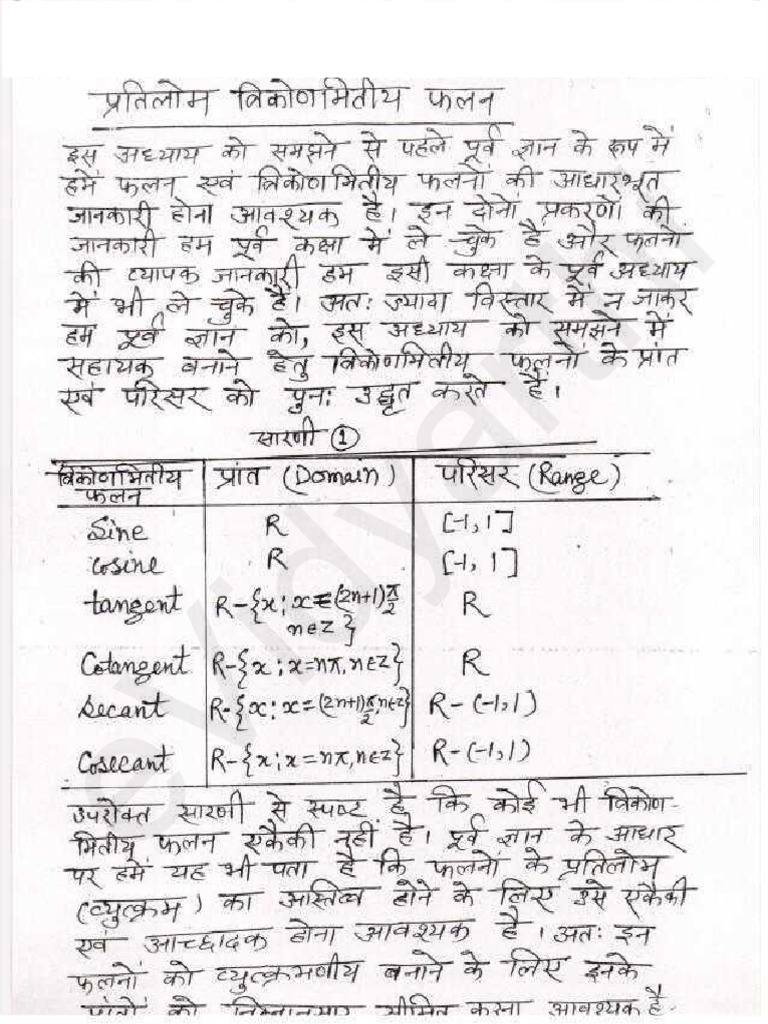 प्रतिलोम त्रिकोणमितीय फलन
इस अध्याय को समझने से पहले पूर्व ज्ञान के रूप में
हमें फलन एवं त्रिकोणमितीय फलनों की आधारभूत
जानकारी होना आवश्यक है। इन दोनों प्रकरणों की
जानकारी हम पूर्व कक्षा में ले चुके है और फलनों
की व्यापक जानकारी हम इसी कक्षा के पूर्व अध्याय
में भी ले चुके है। अतः ज्यादा विस्तार में न जाकर
हम पूर्व ज्ञान को, इस अध्याय को समझने में
सहायक बनाने हेतु त्रिकोणमितीय फलनों के प्रांत
एवं परिसर को पुनः उद्धृत करते हैं।
सारणी ①
त्रिकोणमितीय फलन | प्रांत (Domain) | परिसर (Range)
Sine R [-1,1]
Cosine R [-1,1]
tangent R-{x; x=(2n+1)π/2 n∈z} R
Cotangent R-{x; x=nπ, n∈z} R
Secant R-{x; x=(2n+1)π/2, n∈z} R-(-1,1)
Cosecant R-{x; x=nπ, n∈z} R-(-1,1)
उपरोक्त सारणी से स्पष्ट है कि कोई भी त्रिकोण-
मितीय फलन एकैकी नहीं है। पूर्व ज्ञान के आधार
पर हमें यह भी पता है कि फलनों के प्रतिलोम
(व्युत्क्रम) का अस्तित्व होने के लिए उसे एकैकी
एवं आच्छादक होना आवश्यक है। अतः इन
फलनों को व्युत्क्रमणीय बनाने के लिए इनके
प्रांतों को निम्नानुसार सीमित करना आवश्यक है-
evidyarthi